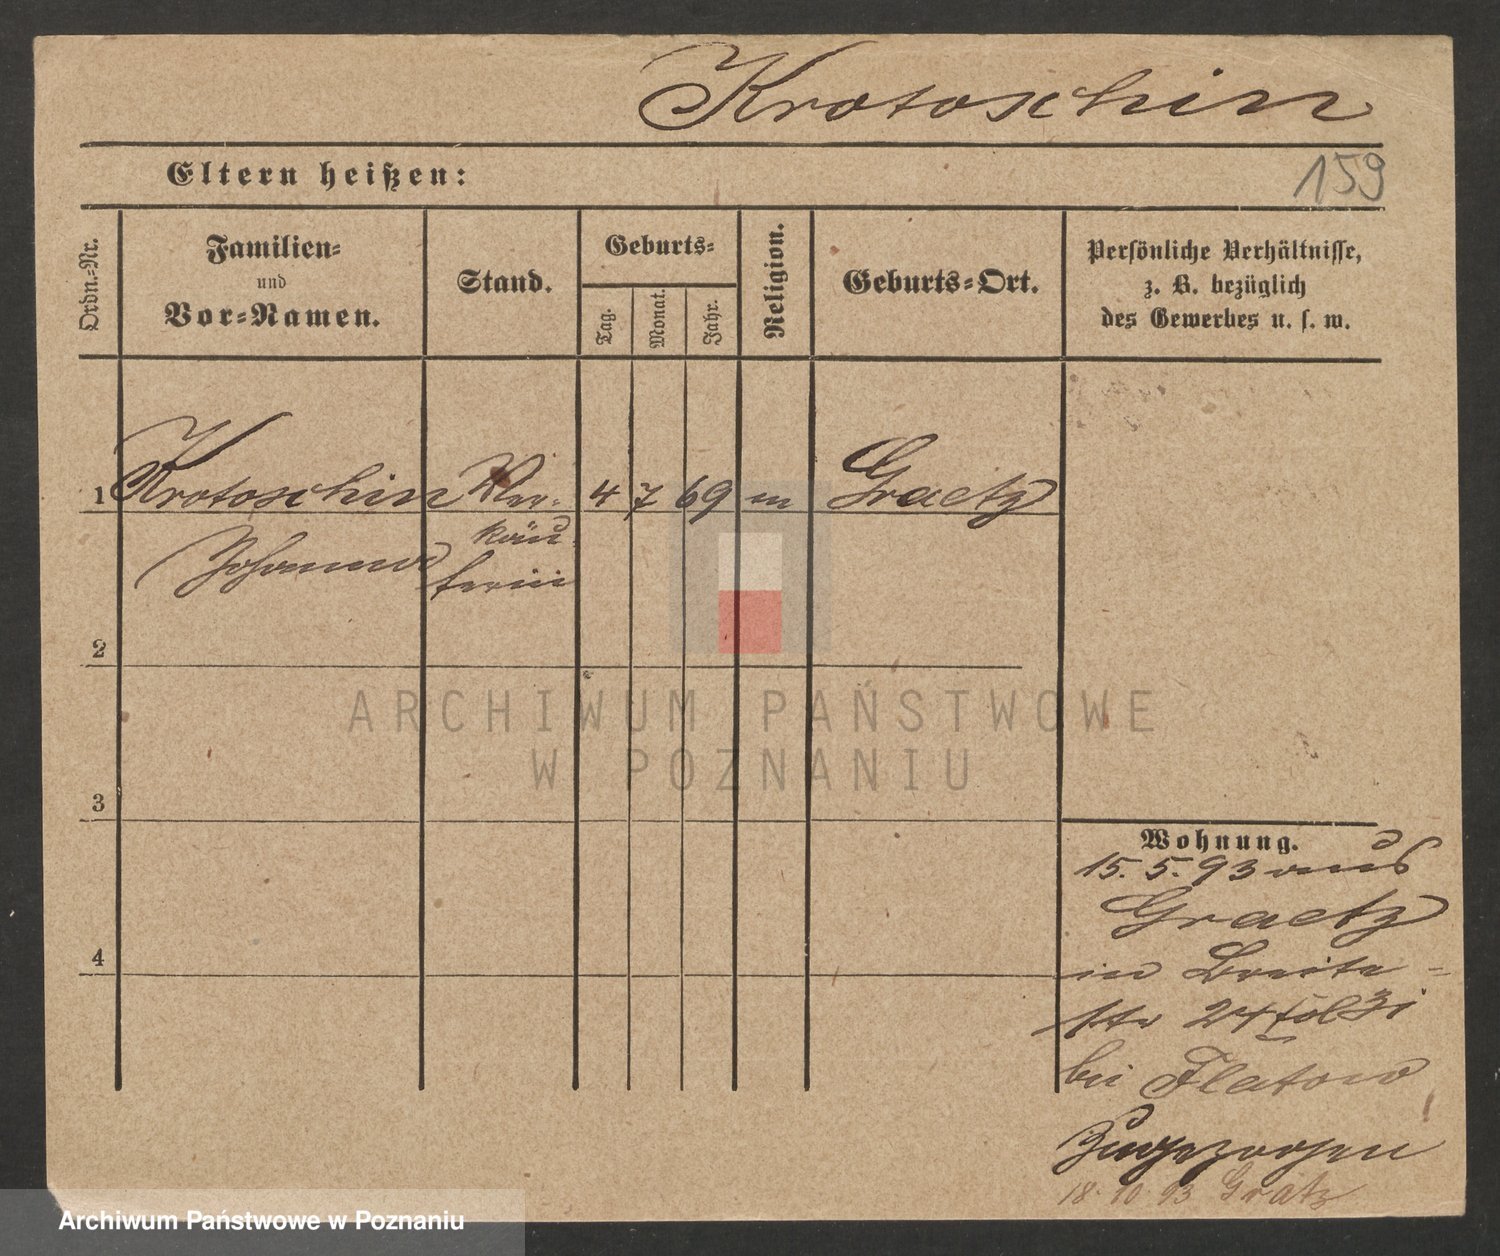 Krotoschin
Eltern heißen:
159
Ordn.-Nr.
Familien-
und
Vor-Namen.
Stand.
Geburts-
Tag.
Monat.
Jahr.
Religion.
Geburts-Ort.
Persönliche Verhältnisse,
z. B. bezüglich
des Gewerbes u. s. w.
1 Krotoschin Ver- 4 7 69 m Graetz
Johanna käu-
ferin
2
ARCHIWUM PAŃSTWOWE
W POZNANIU
3
Wohnung.
15. 5. 93 aus
Graetz
4
in Breite-
str 24
bei Flatow
Zugezogen
18. 10. 93 Grätz
Archiwum Państwowe w Poznaniu